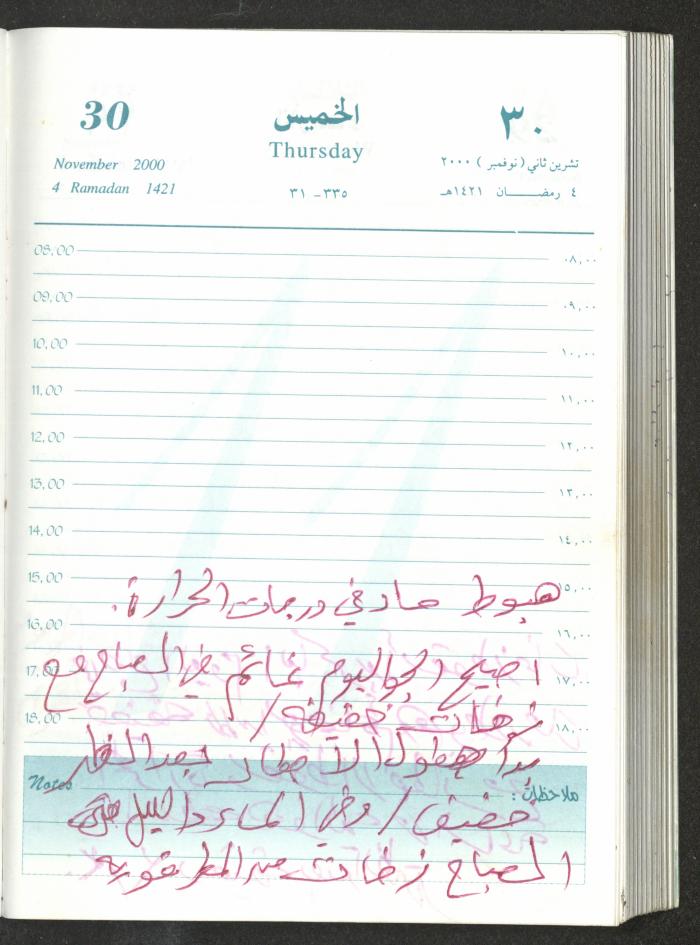 30 الخميس ٣٠
November 2000 Thursday تشرين ثاني (نوفمبر) ٢٠٠٠
4 Ramadan 1421 ٣٣٥ - ٣١ ٤ رمضان ١٤٢١هـ
08,00 ٠٨,٠٠
09,00 ٠٩,٠٠
10,00 ١٠,٠٠
11,00 ١١,٠٠
12,00 ١٢,٠٠
13,00 ١٣,٠٠
14,00 ١٤,٠٠
15,00 ١٥,٠٠
هبوط حاد في درجات الحرارة.
16,00 ١٦,٠٠
اصبح الجو اليوم غائم في الصباح مع
17,00 ١٧,٠٠
زخات خفيفة /
18,00 ١٨,٠٠
بدأ هطول الأمطار بعد الظهر
Notes ملاحظات :
خفيف / وفي المساء والليل حتى
الصباح زخات من المطر قوية